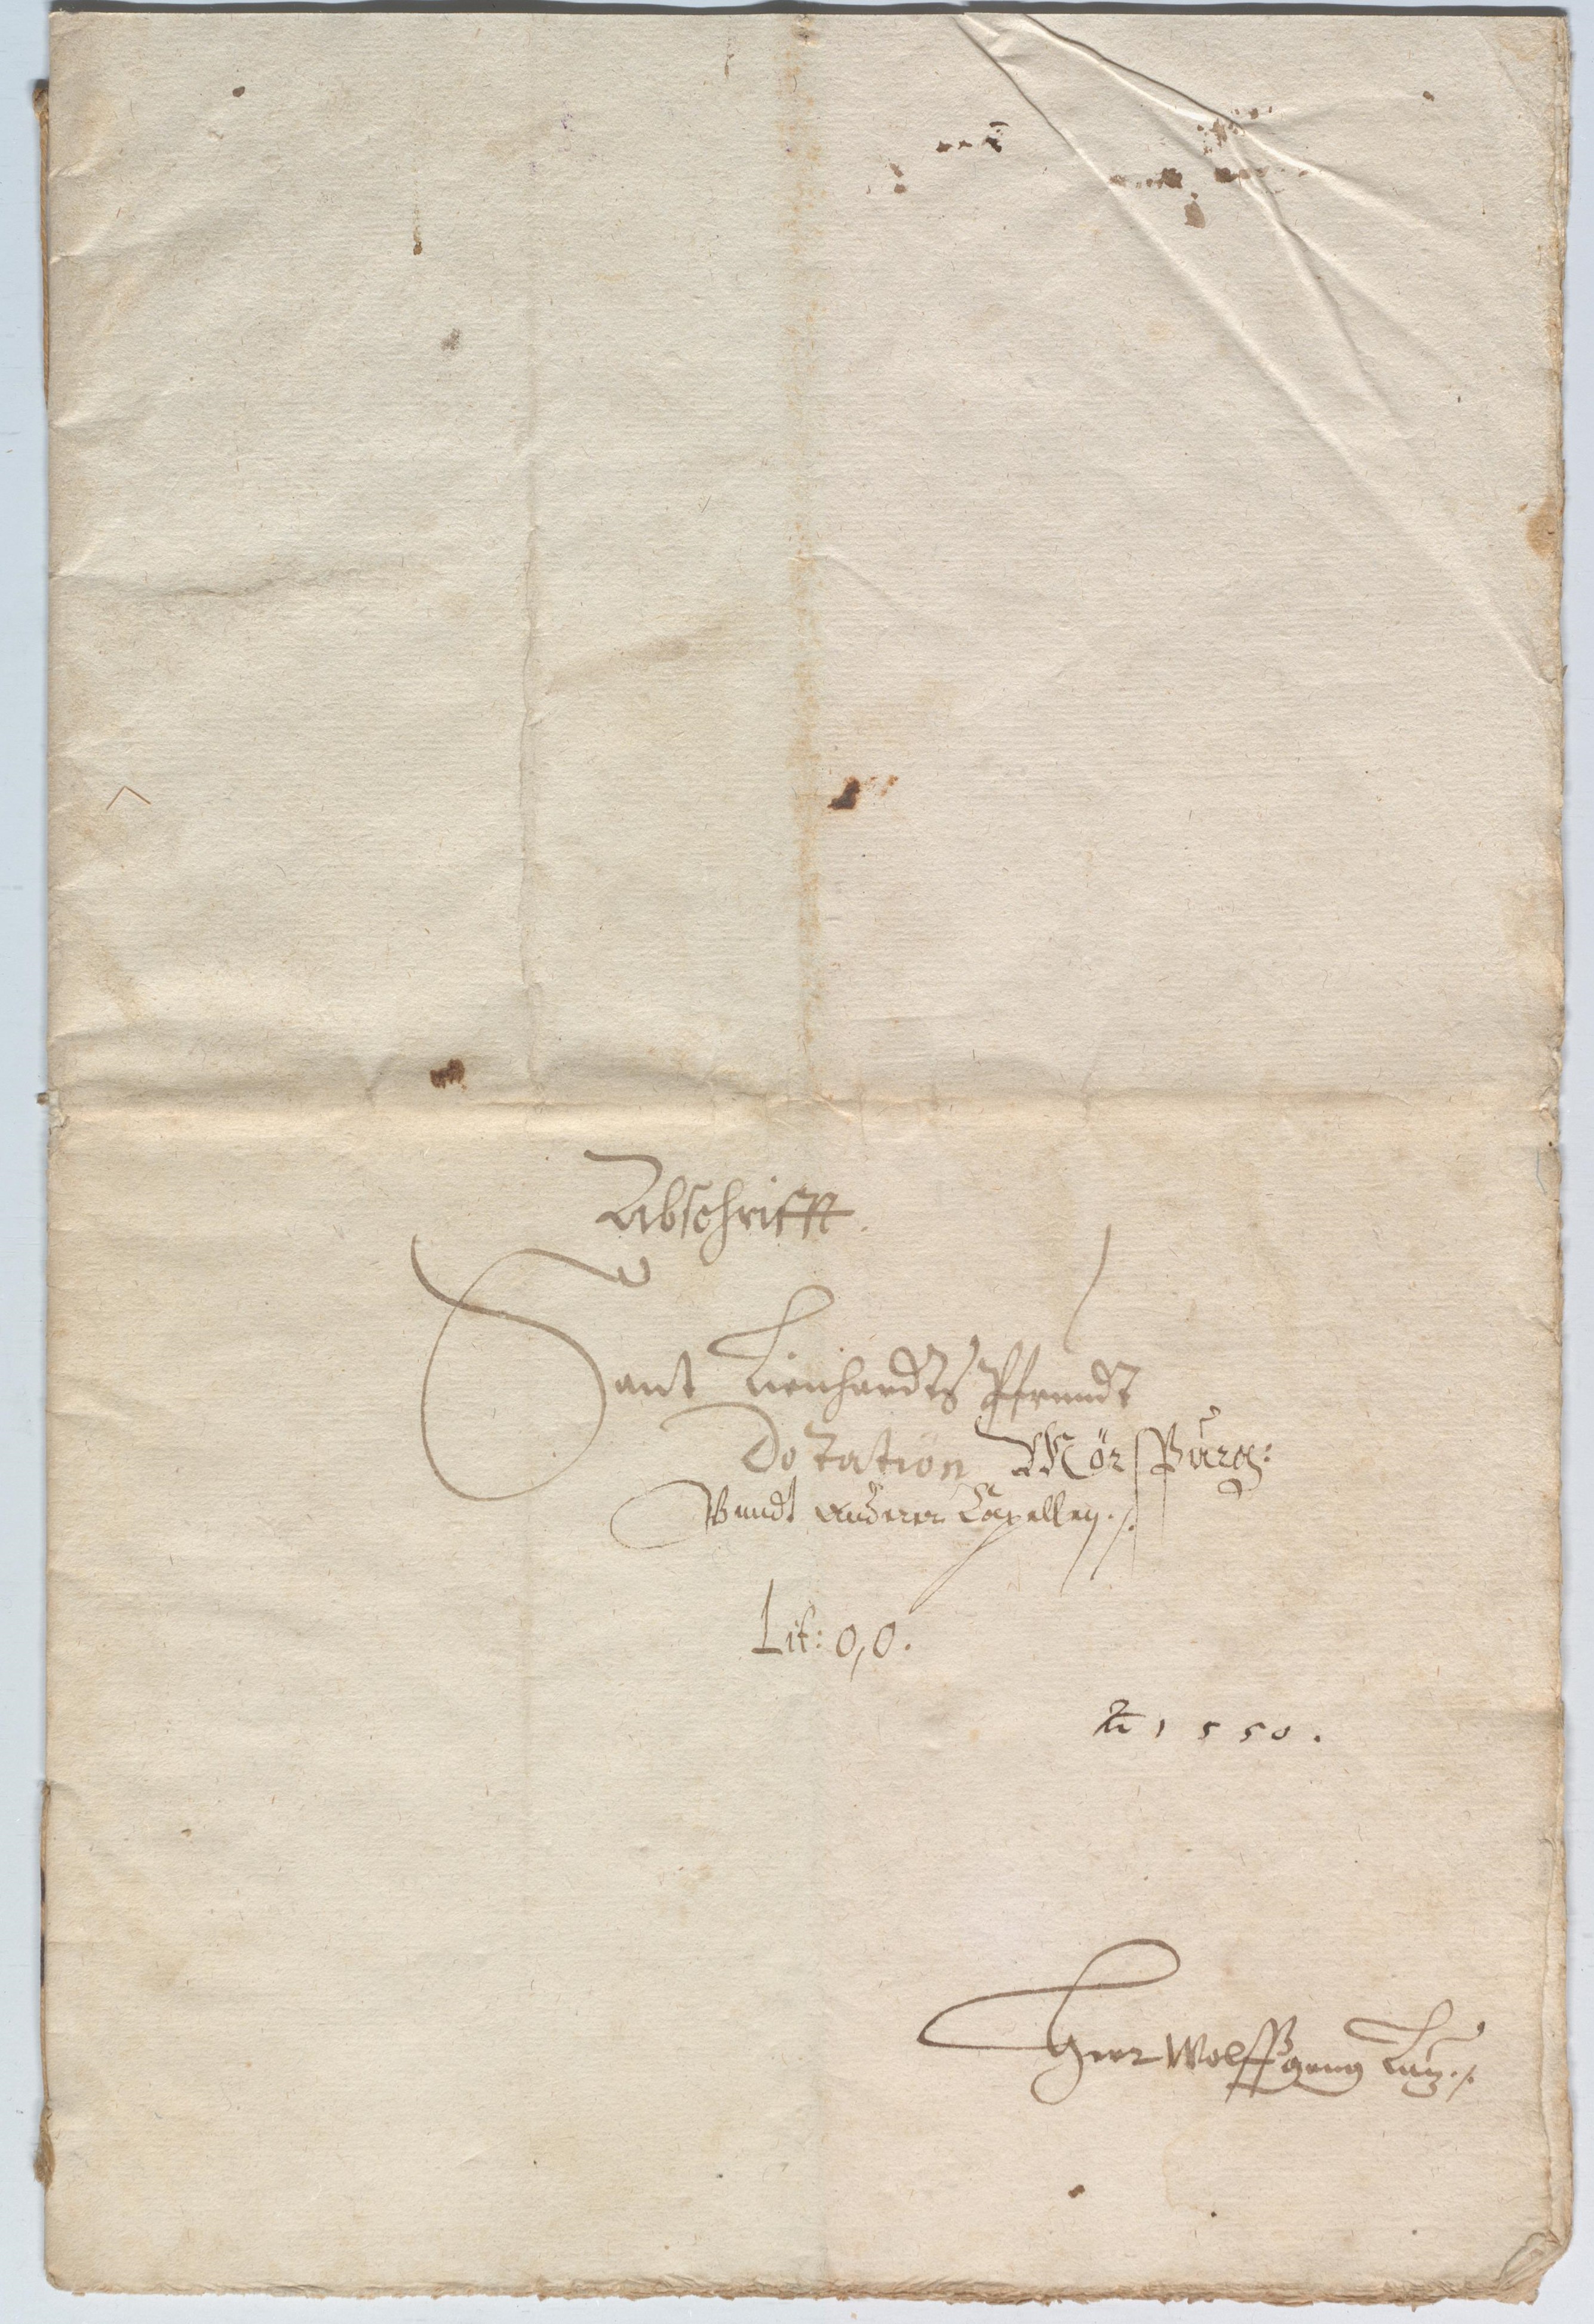 Abschrifft.
Sant Lienhardts Pfrundt
Dotation Mörspurg:
Vnndt Anderer Capellen ./.
Lit: O,O.
1550.
Herr Wolffgang